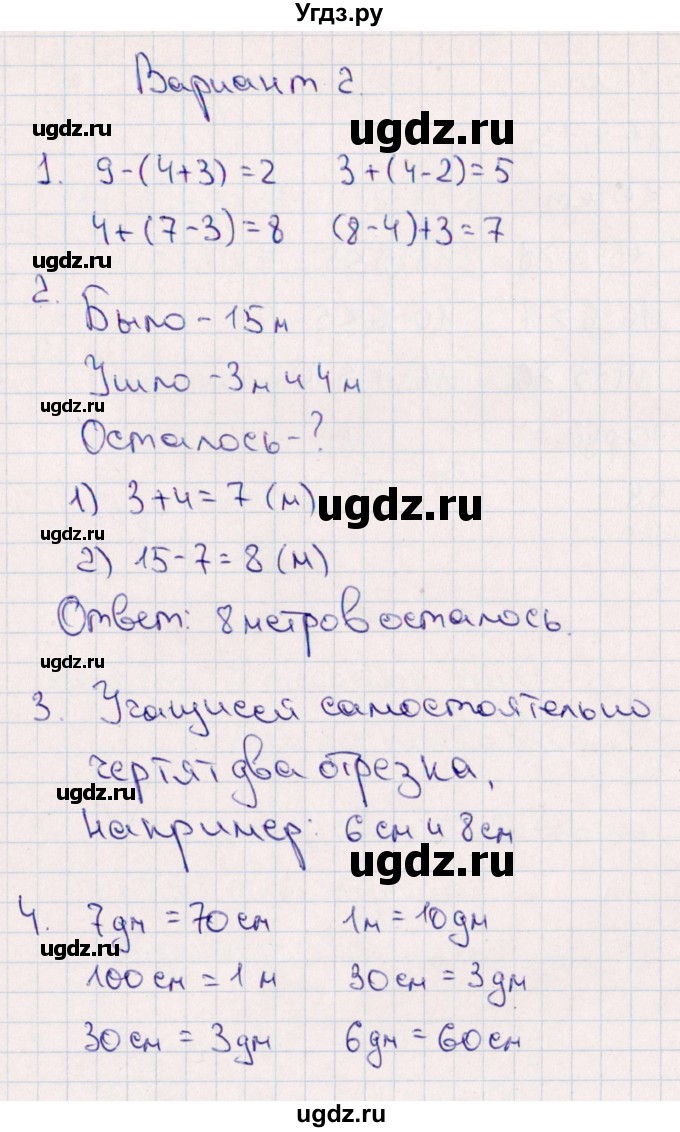 Угдз.ру
Вариант 2.
ugdz.ru ugdz.ru
1. 9-(4+3)=2 3+(4-2)=5
4+(7-3)=8 (8-4)+3=7
ugdz.ru
2.
Было - 15 м
Ушло - 3 м и 4 м
ugdz.ru
Осталось - ?
1) 3+4=7 (м)
ugdz.ru
ugdz.ru
2) 15-7=8 (м)
Ответ: 8 метров осталось.
ugdz.ru
3. Учащиеся самостоятельно
чертят два отрезка,
ugdz.ru
например: 6 см и 8 см
ugdz.ru
4. 7 дм = 70 см 1 м = 10 дм
ugdz.ru
100 см = 1 м 30 см = 3 дм
30 см = 3 дм 6 дм = 60 см
ugdz.ru